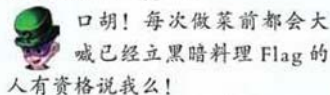 口胡！每次做菜前都会大
喊已经立黑暗料理 Flag 的
人有资格说我么！